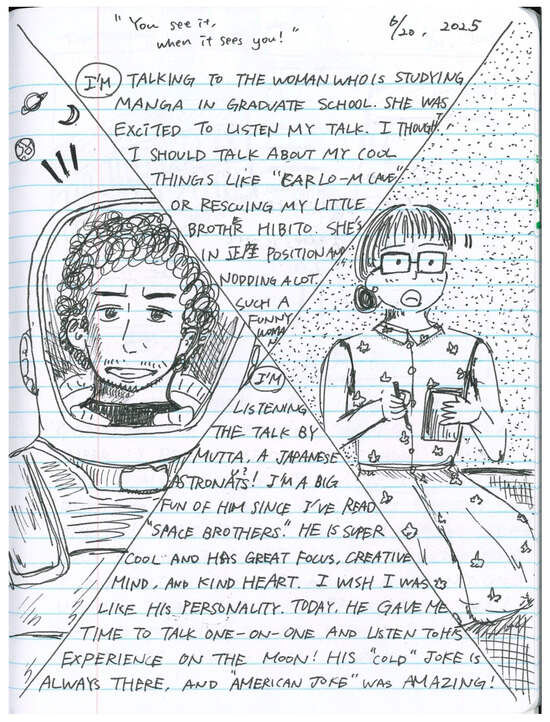 "You see it,
when it sees you!"
6/20, 2025
I'M TALKING TO THE WOMAN WHO IS STUDYING
MANGA IN GRADUATE SCHOOL. SHE WAS
EXCITED TO LISTEN MY TALK. I THOUGHT
I SHOULD TALK ABOUT MY COOL
THINGS LIKE "CARLO-M CAVE"
OR RESCUING MY LITTLE
BROTHER HIBITO. SHE'S
IN 正座 POSITION AND
NODDING A LOT.
SUCH A
FUNNY
WOMAN
I'M
LISTENING
THE TALK BY
MUTTA, A JAPANESE
ASTRONATS! I'M A BIG
FUN OF HIM SINCE I'VE READ
"SPACE BROTHERS." HE IS SUPER
COOL AND HAS GREAT FOCUS, CREATIVE
MIND, AND KIND HEART. I WISH I WAS
LIKE HIS PERSONALITY. TODAY, HE GAVE ME
TIME TO TALK ONE-ON-ONE AND LISTEN TO HIS
EXPERIENCE ON THE MOON! HIS "COLD" JOKE IS
ALWAYS THERE, AND "AMERICAN JOKE" WAS AMAZING!